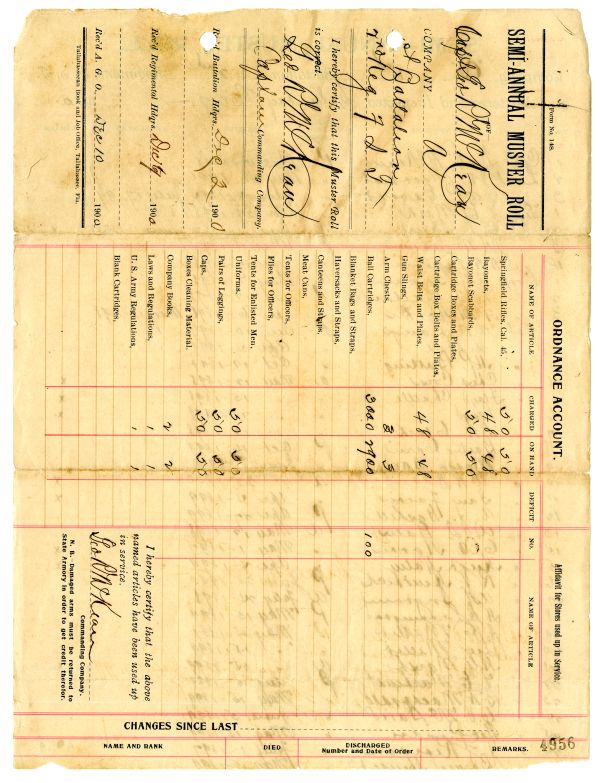 Form No. 148.
SEMI-ANNUAL MUSTER ROLL
OF
Capt Geo R McKean
COMPANY A
1 Battalion
Reg F S T
I hereby certify that this Muster Roll
is correct.
Geo R McKean
Captain Commanding Company.
Rec'd Battalion Hdqrs. Dec 2 1900
Rec'd Regimental Hdqrs. Dec 1900
Rec'd A. G. O. Dec 10 1900
Tallahassee Book and Job Office, Tallahassee, Fla.
ORDNANCE ACCOUNT.
NAME OF ARTICLE CHARGED ON HAND DEFICIT
Springfield Rifles, Cal. 45, 50 50
Bayonets, 48 48
Bayonet Scabbards, 50 50
Cartridge Boxes and Plates,
Cartridge Box Belts and Plates,
Waist Belts and Plates, 48 48
Gun Slings,
Arm Chests, 3 3
Ball Cartridges, 3000 2900 100
Blanket Bags and Straps,
Haversacks and Straps,
Canteens and Straps,
Meat Cans,
Tents for Officers,
Flies for Officers,
Tents for Enlisted Men,
Uniforms, 50 50
Pairs of Leggings, 50 50
Caps, 50 50
Boxes Cleaning Material,
Company Books, 2 2
Laws and Regulations, 1 1
U. S. Army Regulations, 1 1
Blank Cartridges,
Affidavit for Stores used up in Service.
NO. NAME OF ARTICLE
I hereby certify that the above
named articles have been used up
in service.
Geo R McKean
Commanding Company.
N. B.--Damaged arms must be returned to
State Armory in order to get credit therefor.
CHANGES SINCE LAST
NAME AND RANK DIED DISCHARGED
Number and Date of Order REMARKS.
4956